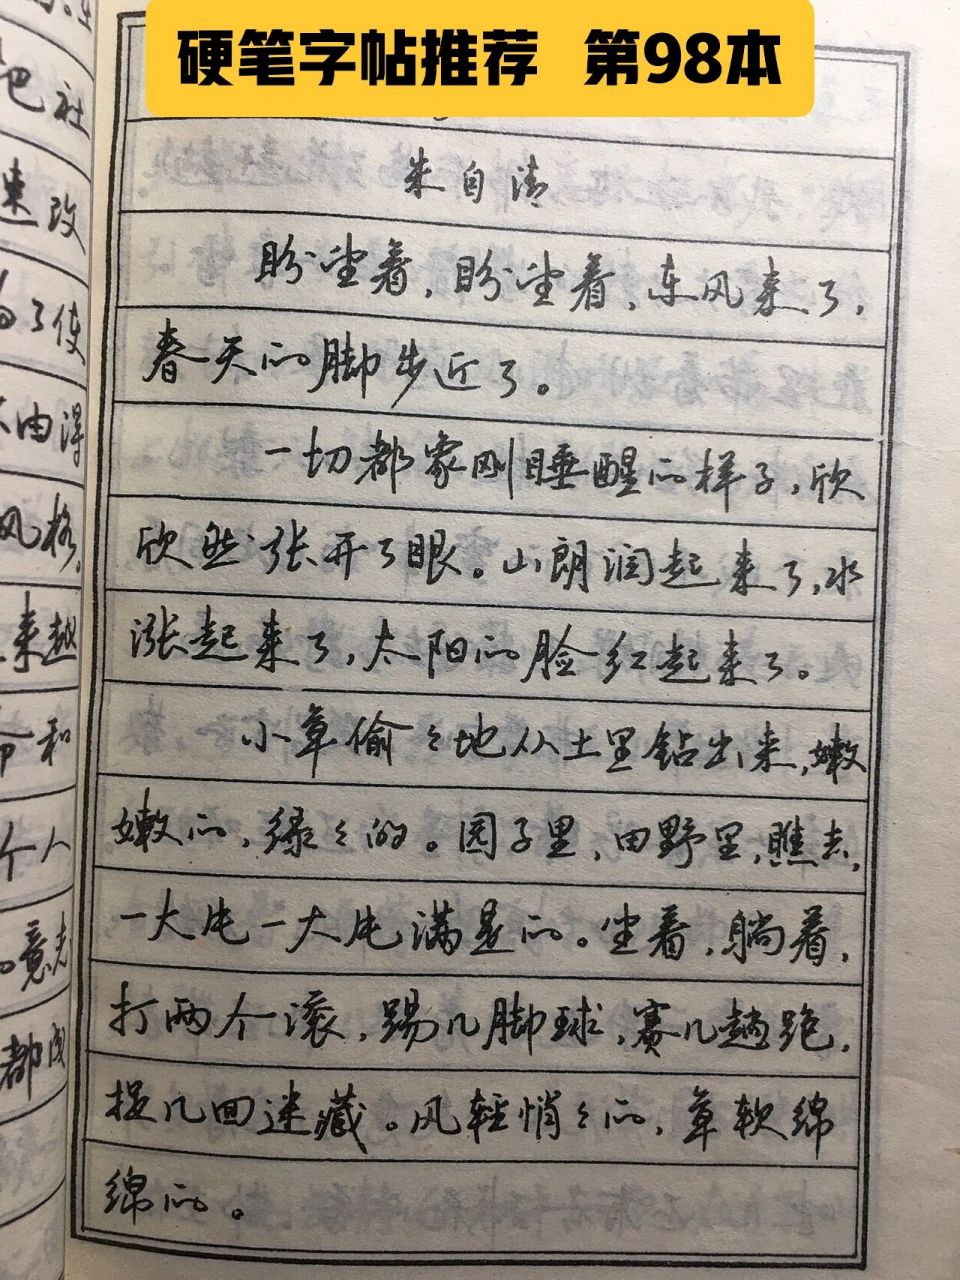 硬笔字帖推荐 第98本
朱自清
盼望着,盼望着,东风来了,
春天的脚步近了。
一切都象刚睡醒的样子,欣
欣然张开了眼。山朗润起来了,水
涨起来了,太阳的脸红起来了。
小草偷々地从土里钻出来,嫩
嫩的,绿々的。园子里,田野里,瞧去,
一大片一大片满是的。坐着,躺着,
打两个滚,踢几脚球,赛几趟跑,
捉几回迷藏。风轻悄々的,草软绵
绵的。
巴社
速改
了使
由得
风格,
来越
和
个人
。意志
都成